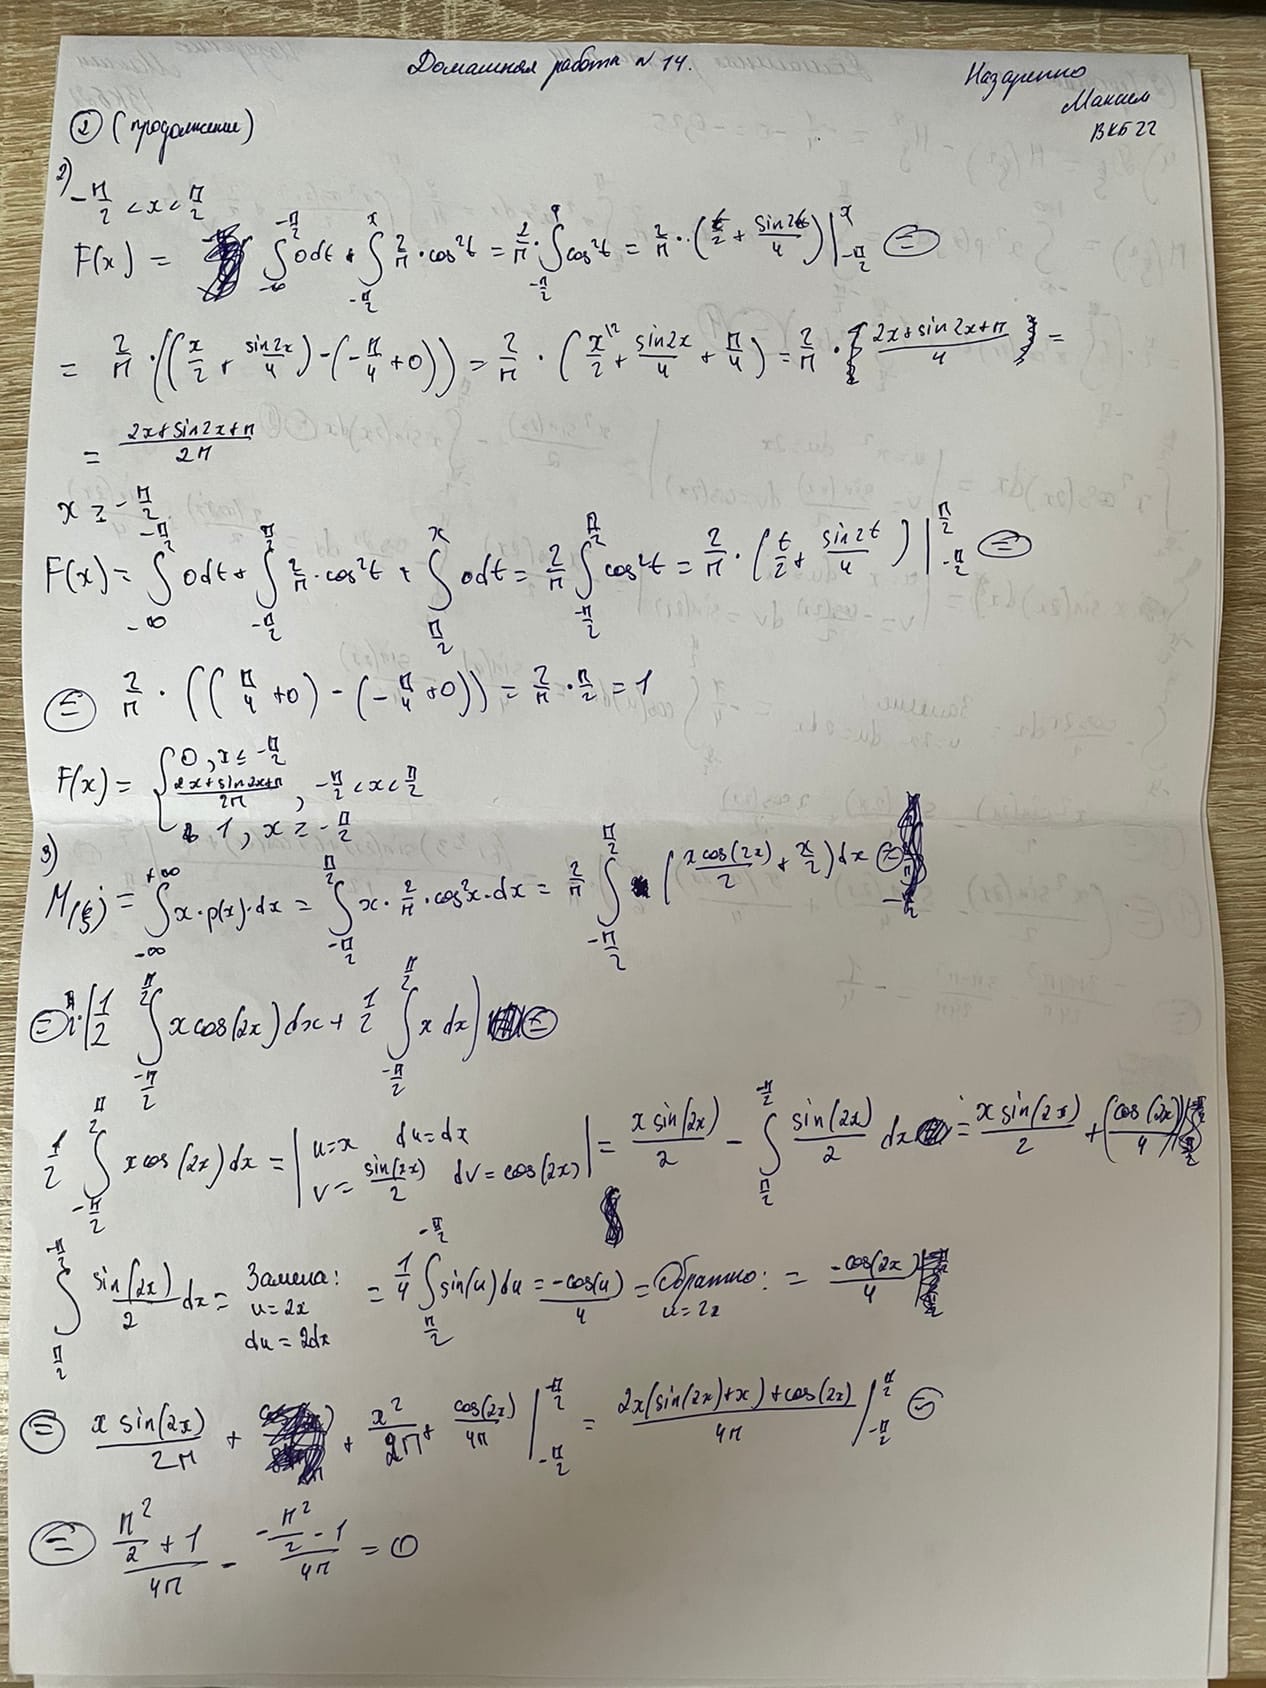 Домашняя работа № 14.
Назаренко
Максим
ВКБ22
② (продолжение)
2)
-π/2 < x < π/2
F(x) = ∫_{-∞}^{-π/2} 0dt + ∫_{-π/2}^{x} 2/π · cos²t = 2/π · ∫_{-π/2}^{x} cos²t = 2/π · (t/2 + sin2t/4) |_{-π/2}^{x} ⊜
= 2/π · ((x/2 + sin2x/4) - (-π/4 + 0)) = 2/π · (x^{12}/2 + sin2x/4 + π/4) = 2/π · (2x+sin2x+π)/4 =
= (2x+sin2x+π)/2π
x ≥ -π/2
F(x) = ∫_{-∞}^{-π/2} 0dt + ∫_{-π/2}^{π/2} 2/π · cos²t + ∫_{π/2}^{x} 0dt = 2/π ∫_{-π/2}^{π/2} cos²t = 2/π · (t/2 + sin2t/4) |_{-π/2}^{π/2} ⊜
⊜ 2/π · ((π/4 + 0) - (-π/4 + 0)) = 2/π · π/2 = 1
F(x) = { 0, x ≤ -π/2
(2x+sin2x+π)/2π, -π/2 < x < π/2
1, x ≥ -π/2
3)
M(ξ) = ∫_{-∞}^{+∞} x · p(x) · dx = ∫_{-π/2}^{π/2} x · 2/π · cos²x · dx = 2/π ∫_{-π/2}^{π/2} (x cos(2x)/2 + x/2) dx ⊜
⊜ π/2 · (1/2 ∫_{-π/2}^{π/2} x cos(2x) dx + 1/2 ∫_{-π/2}^{π/2} x dx) ⊜
1/2 ∫_{-π/2}^{π/2} x cos(2x) dx = | u=x du=dx
v = sin(2x)/2 dv = cos(2x) | = x sin(2x)/2 - ∫_{π/2}^{-π/2} sin(2x)/2 dx = x sin(2x)/2 + (cos(2x)/4)
∫_{π/2}^{-π/2} sin(2x)/2 dx = Замена: u = 2x du = 2dx = 1/4 ∫_{π/2}^{-π/2} sin(u) du = -cos(u)/4 = Обратно: u = 2x = -cos(2x)/4
⊜ x sin(2x)/2π + x²/2π + cos(2x)/4π |_{-π/2}^{π/2} = (2x(sin(2x)+x)+cos(2x))/4π |_{-π/2}^{π/2} ⊜
⊜ (π²/2 + 1)/4π - (-π²/2 - 1)/4π = 0